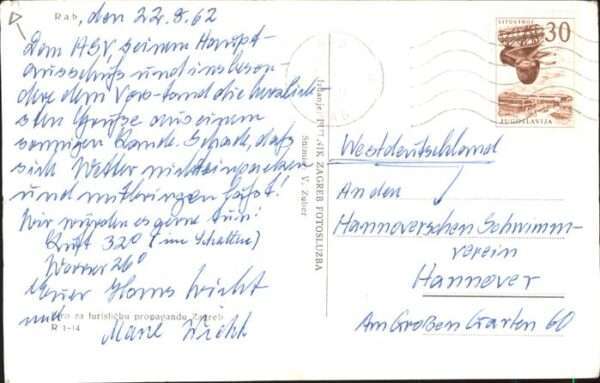 Rab, den 22.8.62
Dem HSV, seinem Haupt-
ausschuß und insbeson-
dere dem Vorstand die herzlich-
sten Grüße aus einem
sonnigen Lande. Schade, daß
sich Wetter nicht einpacken
und mitbringen läßt!
Wir würden es gerne tun!
Luft 32° (im Schatten)
Wasser 26°
Euer Hans Wicht
und
Marie Wicht
za turističku propagandu Zagreb
R 1-14
Izdanje PUTNIK ZAGREB FOTOSLUŽBA
Snimio V. Zuber
LITOSTROJ
30
JUGOSLAVIJA
Westdeutschland
An den
Hannoverschen Schwimm-
verein
Hannover
Am Großen Garten 60